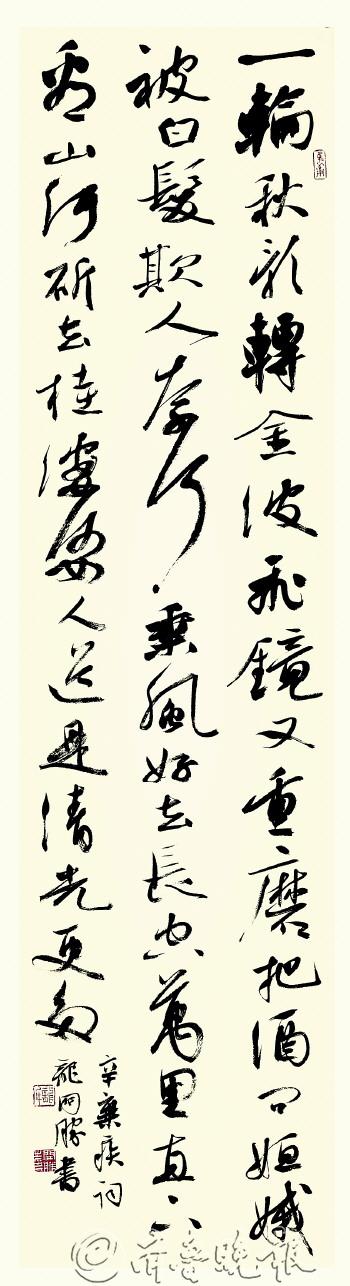 一輪秋影轉金波飛鏡又重磨把酒問姮娥
被白髮欺人奈何乘風好去長空萬里直下
看山河斫去桂婆娑人道是清光更多
辛棄疾詞
龍開勝書
©齐鲁晚报